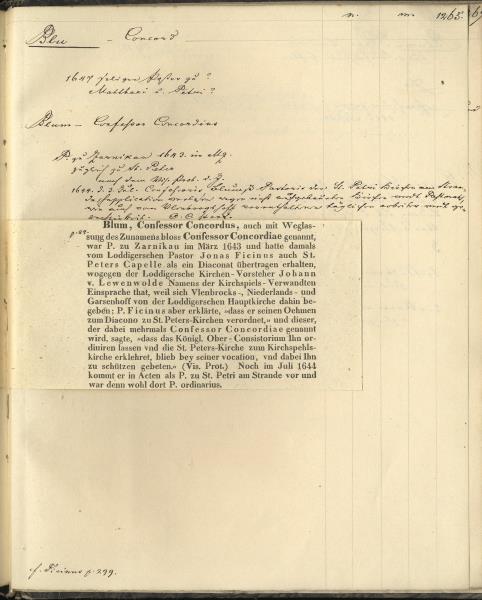 n. m. 1265.
Blu — Concord
1647 seliger Pastor zu ?
Matthaei u. Petri ?
Blum – Confessor Concordius
P. zu Zarnikau 1643. in
zugleich zu St. Peter
nach dem Visit. Prot. d. J.
1644. d. 3. Jul. Confessoris Pastoris der St. Petri
p. 22.
Blum, Confessor Concordus, auch mit Weglas-
sung des Zunamens bloss Confessor Concordiae genannt,
war P. zu Zarnikau im März 1643 und hatte damals
vom Loddigerschen Pastor Jonas Ficinus auch St.
Peters Capelle als ein Diaconat übertragen erhalten,
wogegen der Loddigersche Kirchen-Vorsteher Johann
v. Lewenwolde Namens der Kirchspiels-Verwandten
Einsprache that, weil sich Vlenbrocks-, Niederlands- und
Garsenhoff von der Loddigerschen Hauptkirche dahin be-
geben; P. Ficinus aber erklärte, «dass er seinen Oehmen
zum Diacono zu St. Peters-Kirchen verordnet,» und dieser,
der dabei mehrmals Confessor Concordiae genannt
wird, sagte, «dass das Königl. Ober-Consistorium Ihn or-
diniren lassen vnd die St. Peters-Kirche zum Kirchspehls-
kirche erklehret, blieb bey seiner vocation, vnd dabei Ihn
zu schützen gebeten.» (Vis. Prot.) Noch im Juli 1644
kommt er in Acten als P. zu St. Petri am Strande vor und
war denn wohl dort P. ordinarius.
cf. Ficinus p. 299.